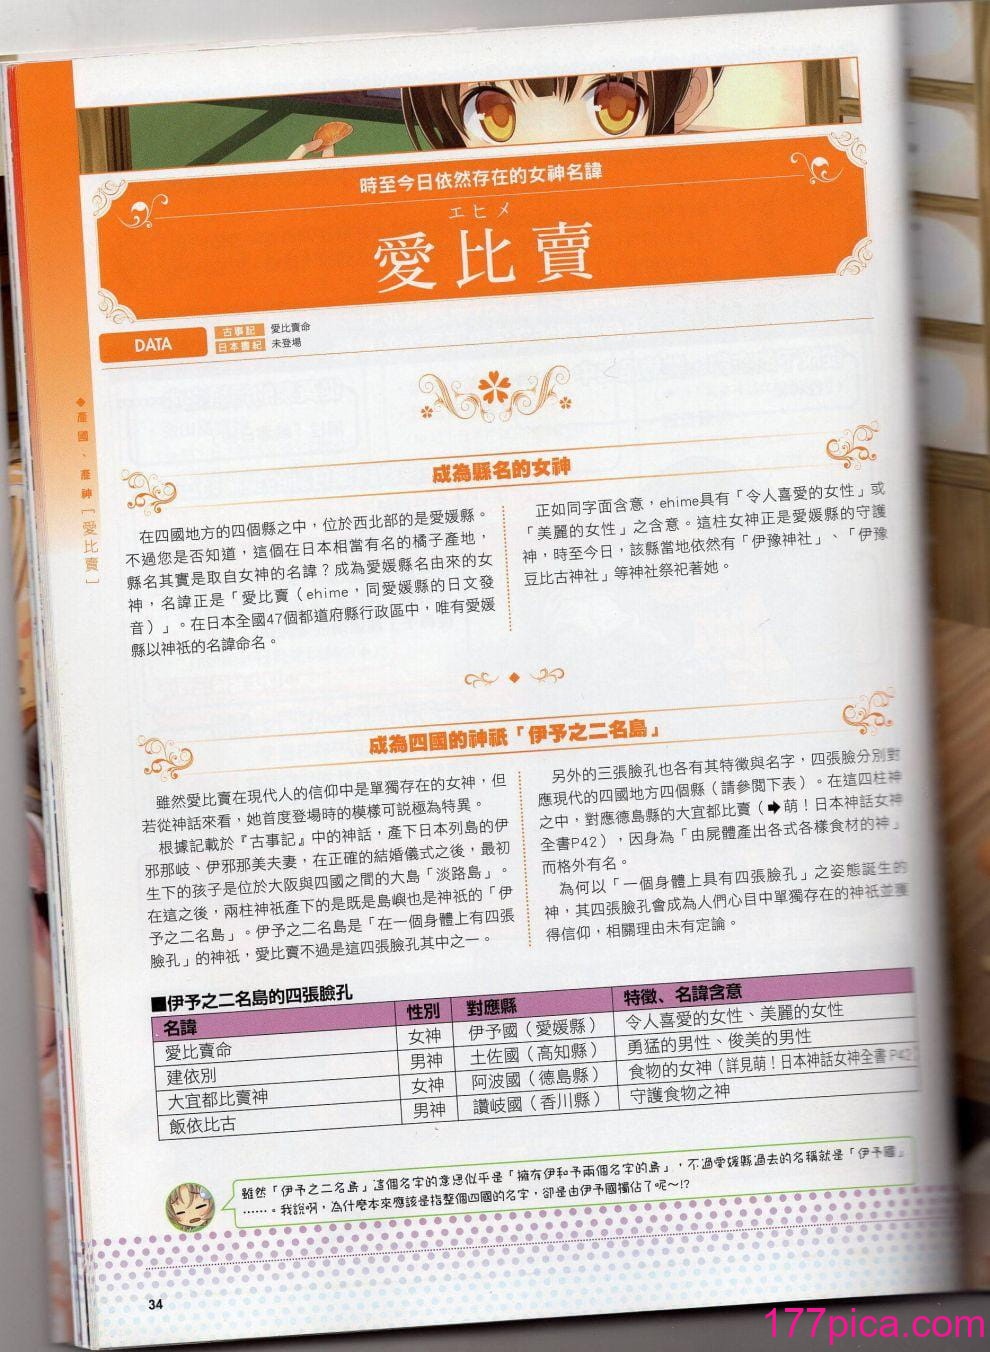 時至今日依然存在的女神名諱
エヒメ
愛比賣
DATA
古事記 愛比賣命
日本書紀 未登場
◆產國、產神［愛比賣］
成為縣名的女神
在四國地方的四個縣之中，位於西北部的是愛媛縣。
不過您是否知道，這個在日本相當有名的橘子產地，
縣名其實是取自女神的名諱？成為愛媛縣名由來的女
神，名諱正是「愛比賣（ehime，同愛媛縣的日文發
音）」。在日本全國47個都道府縣行政區中，唯有愛媛
縣以神祇的名諱命名。
正如同字面含意，ehime具有「令人喜愛的女性」或
「美麗的女性」之含意。這柱女神正是愛媛縣的守護
神，時至今日，該縣當地依然有「伊豫神社」、「伊豫
豆比古神社」等神社祭祀著她。
成為四國的神祇「伊予之二名島」
雖然愛比賣在現代人的信仰中是單獨存在的女神，但
若從神話來看，她首度登場時的模樣可說極為特異。
根據記載於『古事記』中的神話，產下日本列島的伊
邪那岐、伊邪那美夫妻，在正確的結婚儀式之後，最初
生下的孩子是位於大阪與四國之間的大島「淡路島」。
在這之後，兩柱神祇產下的是既是島嶼也是神祇的「伊
予之二名島」。伊予之二名島是「在一個身體上有四張
臉孔」的神祇，愛比賣不過是這四張臉孔其中之一。
另外的三張臉孔也各有其特徵與名字，四張臉分別對
應現代的四國地方四個縣（請參閱下表）。在這四柱神
之中，對應德島縣的大宜都比賣（➡萌！日本神話女神
全書P42），因身為「由屍體產出各式各樣食材的神」
而格外有名。
為何以「一個身體上具有四張臉孔」之姿態誕生的
神，其四張臉孔會成為人們心目中單獨存在的神祇並獲
得信仰，相關理由未有定論。
■伊予之二名島的四張臉孔
名諱 性別 對應縣 特徵、名諱含意
愛比賣命 女神 伊予國（愛媛縣） 令人喜愛的女性、美麗的女性
建依別 男神 土佐國（高知縣） 勇猛的男性、俊美的男性
大宜都比賣神 女神 阿波國（德島縣） 食物的女神（詳見萌！日本神話女神全書 P42）
飯依比古 男神 讚岐國（香川縣） 守護食物之神
雖然「伊予之二名島」這個名字的意思似乎是「擁有伊和予兩個名字的島」，不過愛媛縣過去的名稱就是「伊予國」
……。我說啊，為什麼本來應該是指整個四國的名字，卻是由伊予國獨佔了呢～!?
34
177pica.com